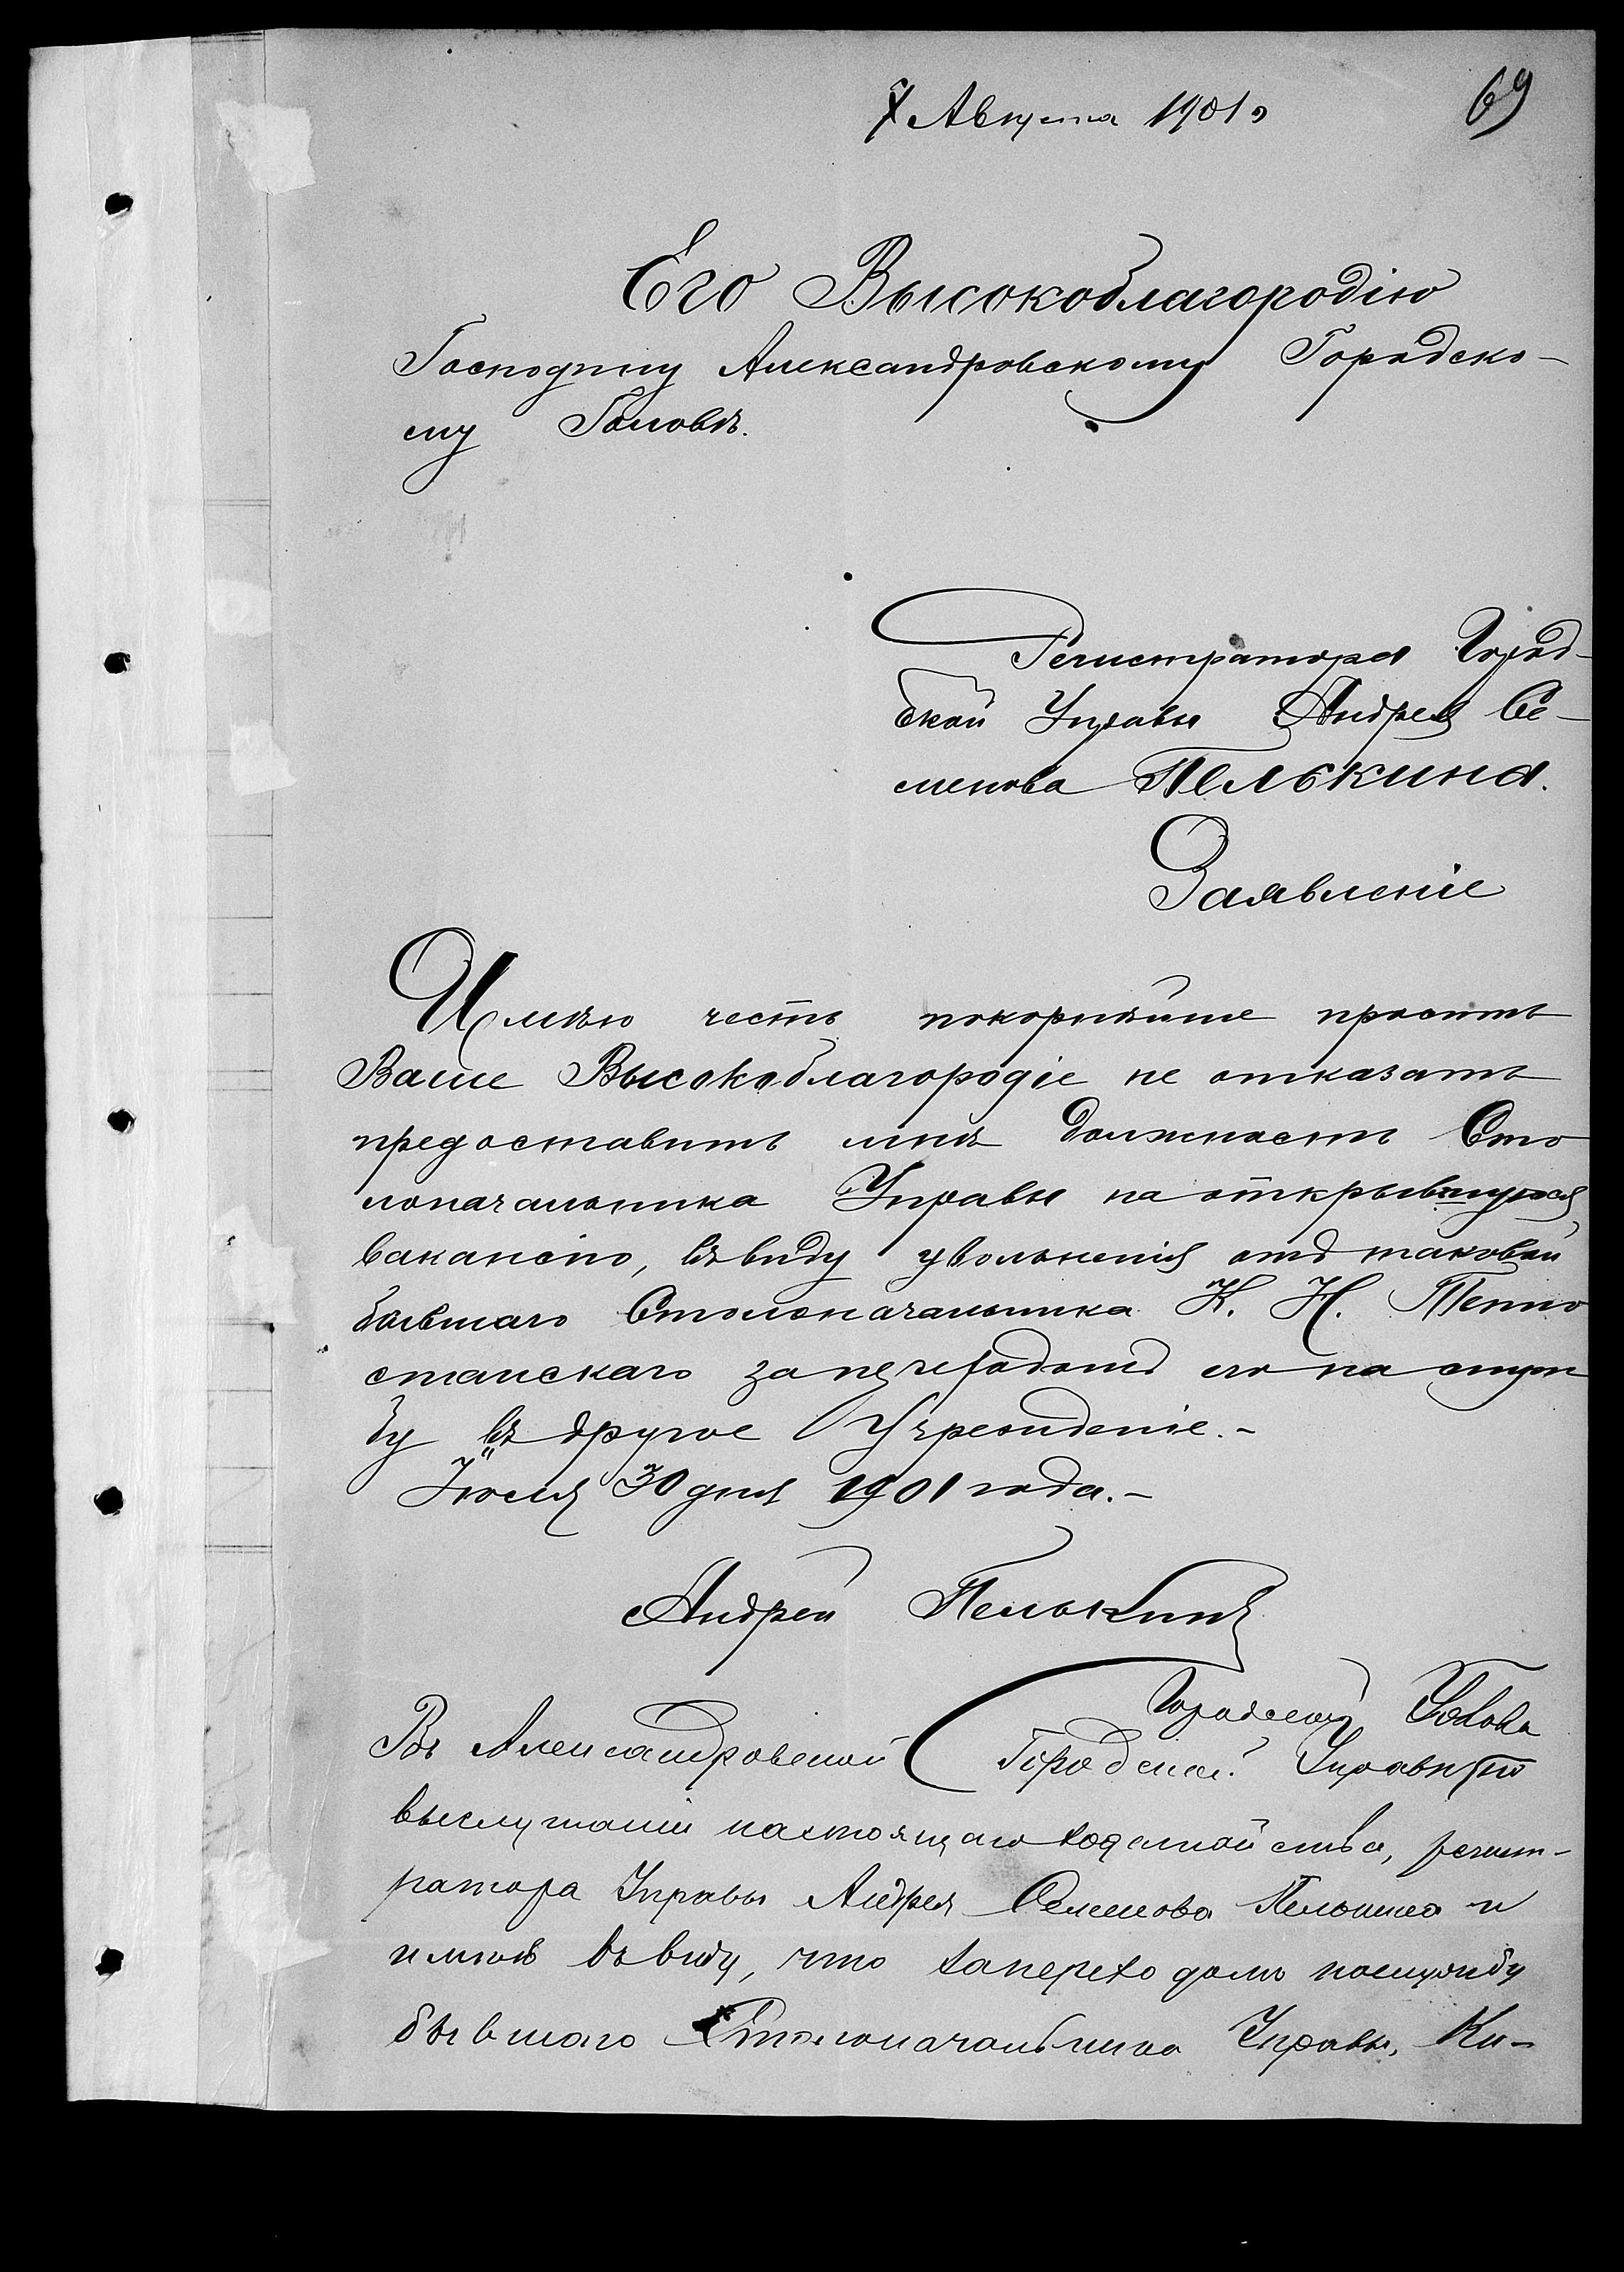 7 Августа 1901 г
69
Его Высокоблагородію
Господину Александровскому Городско-
му Головѣ.
Регистратора Город-
ской Управы Андрея Се-
менова Пелькина.
Заявленіе
Имѣю честь покорнѣйше просить
Ваше Высокоблагородіе не отказать
предоставить мнѣ должность Сто
лоначальника Управы на открывшуюся
вакансію, въ виду увольненія отъ таковой
бывшаго Столоначальника К. Н.
станскаго за переходомъ его на служ
бу въ другое Учрежденіе.-
Іюля 30 дня 1901 года.-
Андрей Пелькинъ
Городской Голова
Въ Александровской Городской Управѣ по
выслушаніи настоящаго ходатайства, регист-
ратора Управы Андрея Семенова Пелькина и
имѣя въ виду, что за переходомъ на службу
бывшаго Столоначальника Управы, Ки-